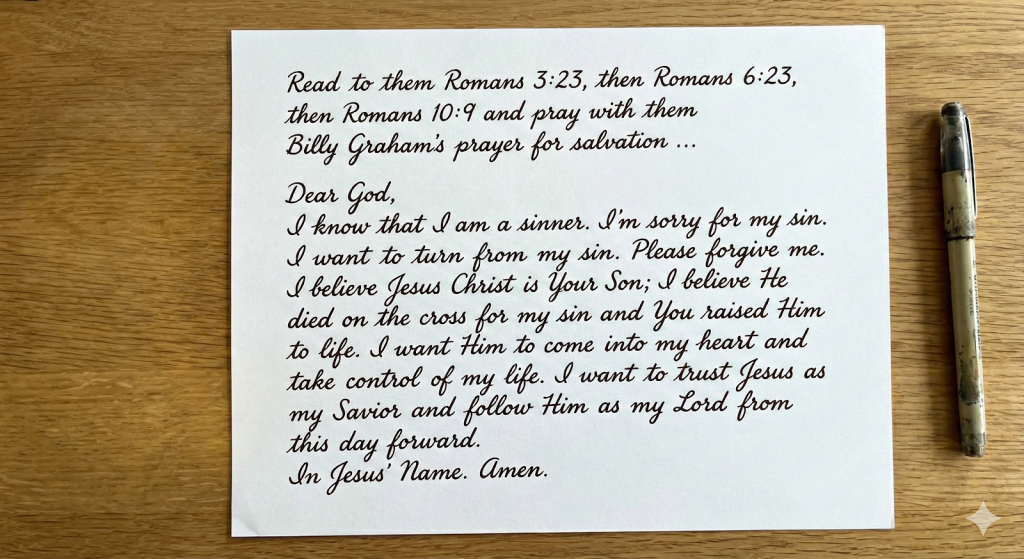 Read to them Romans 3:23, then Romans 6:23,
then Romans 10:9 and pray with them
Billy Graham's prayer for salvation ...
Dear God,
I know that I am a sinner. I'm sorry for my sin.
I want to turn from my sin. Please forgive me.
I believe Jesus Christ is Your Son; I believe He
died on the cross for my sin and You raised Him
to life. I want Him to come into my heart and
take control of my life. I want to trust Jesus as
my Savior and follow Him as my Lord from
this day forward.
In Jesus' Name. Amen.